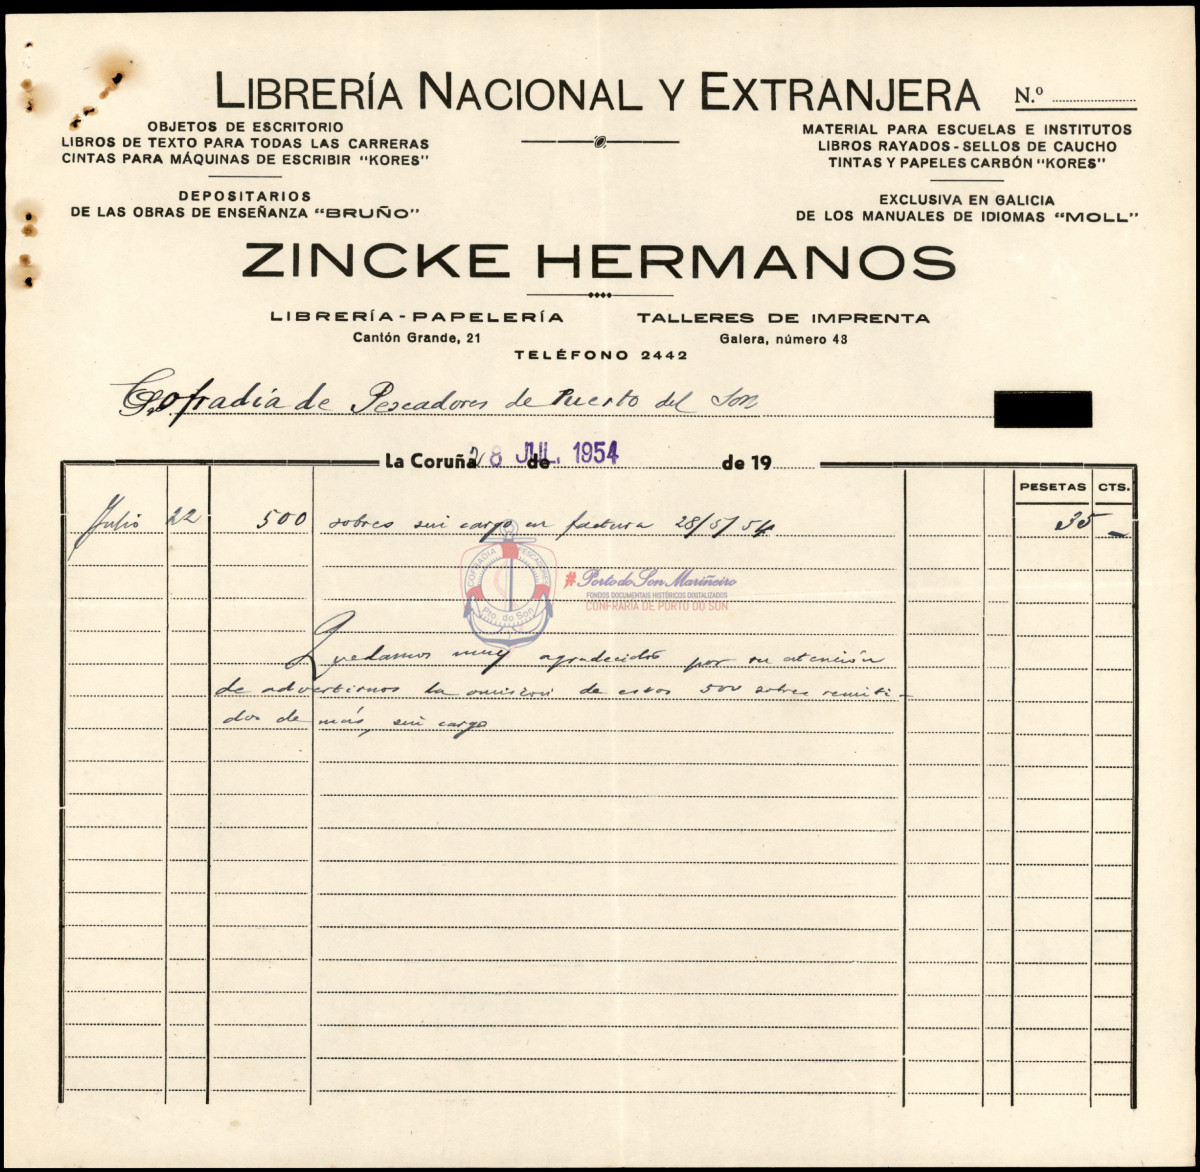 LIBRERÍA NACIONAL Y EXTRANJERA
N.º
OBJETOS DE ESCRITORIO
LIBROS DE TEXTO PARA TODAS LAS CARRERAS
CINTAS PARA MÁQUINAS DE ESCRIBIR "KORES"
DEPOSITARIOS
DE LAS OBRAS DE ENSEÑANZA "BRUÑO"
MATERIAL PARA ESCUELAS E INSTITUTOS
LIBROS RAYADOS - SELLOS DE CAUCHO
TINTAS Y PAPELES CARBÓN "KORES"
EXCLUSIVA EN GALICIA
DE LOS MANUALES DE IDIOMAS "MOLL"
ZINCKE HERMANOS
LIBRERÍA - PAPELERÍA
Cantón Grande, 21
TALLERES DE IMPRENTA
Galera, número 43
TELÉFONO 2442
Cofradía de Pescadores de Puerto del Son
La Coruña 28 JUL. 1954 de de 19
PESETAS CTS.
Julio 22 500 sobres sin cargo en factura 28/5/54 35 —
COFRADIA PESCADORES
Pto. do Son
#Porto do Son Mariñeiro
FONDOS DOCUMENTAIS HISTÓRICOS DIXITALIZADOS
CONFRARÍA DE PORTO DO SON
Quedamos muy agradecidos por su atención
de advertirnos la omision de estos 500 sobres remiti-
dos de más, sin cargo